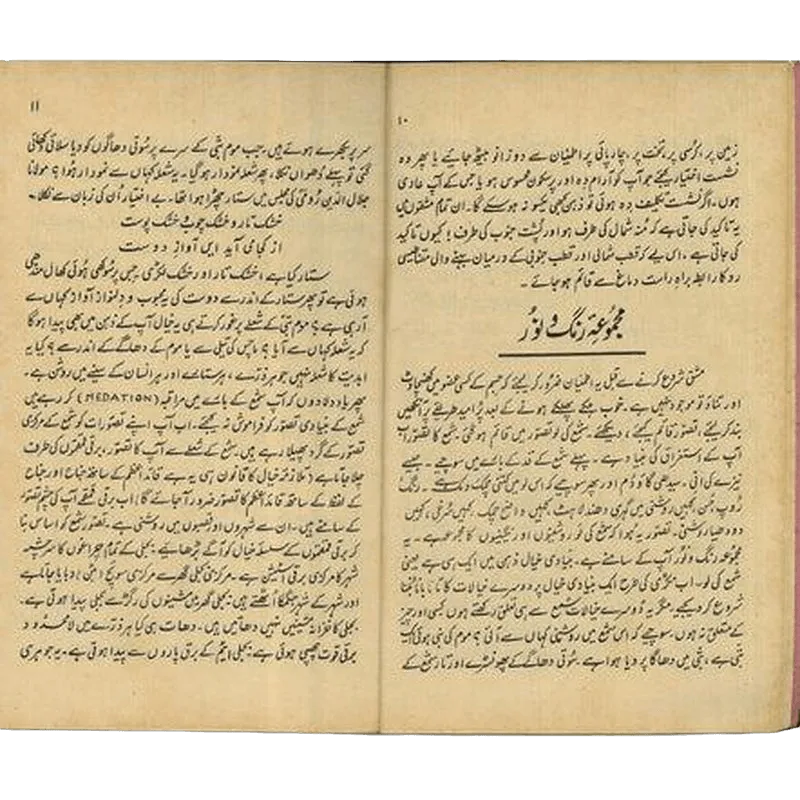 ۱۰
زمین پر، کرسی پر، تخت پر، چارپائی پر اطمینان سے دو زانو بیٹھ جائیے یا پھر وہ
نشست اختیار کیجئے جو آپ کو آرام دہ اور پرسکون محسوس ہو یا جس کے آپ عادی
ہوں، اگر نشست تکلیف دہ ہوئی تو ذہن کبھی یکسو نہ ہو سکے گا۔ ان تمام مشقوں میں
یہ تاکید کی جاتی ہے کہ منہ شمال کی طرف ہو اور پشت جنوب کی طرف! کیوں تاکید
کی جاتی ہے، اس لیے کہ قطب شمالی اور قطب جنوبی کے درمیان بہنے والی مقناطیسی
رو کا رابطہ براہ راست دماغ سے قائم ہو جائے۔
مجموعۂ رنگ و نور
مشق شروع کرنے سے قبل یہ اطمینان ضرور کر لیجئے کہ جسم کے کسی عضو میں کھنچاوٹ
اور تناؤ تو موجود نہیں ہے۔ خوب ہونے کے بعد آنکھیں
بند کر لیجئے، تصور قائم کیجئے، دیکھئے۔ شمع کی لو تصور میں قائم ہو گئی، شمع کا تصور اب
آپ کے استغراق کی بنیاد ہے۔ پہلے شمع کے قد کے بارے میں سوچیے۔ جیسے
نیزے کی انی۔ سیدھی گاؤ دم اور پھر سوچیے کہ اس لو میں کتنی چمک دمک ہے۔ رنگ
روپ، کہیں روشنی میں گہری دھندلاہٹ، کہیں واضح چمک، کہیں سرخی، کہیں
دودھیا روشنی۔ تصور یہ ہوا کہ شمع کی لو روشنیوں اور رنگینیوں کا مجموعہ ہے۔ یہ
مجموعہ رنگ و نور آپ کے سامنے ہے۔ بنیادی خیال ذہن میں ایک ہی ہے یعنی
شمع کی لو۔ اب مکڑی کی طرح ایک بنیادی خیال پر دوسرے خیالات کا تانا بانا بُننا
شروع کر دیجیے، مگر یہ دوسرے خیالات شمع سے ہی تعلق رکھتے ہوں کسی اور چیز
کے متعلق نہ ہوں۔ سوچیے کہ اس شمع میں روشنی کہاں سے آئی؟ موم کی بنی ہوئی ایک
بتی ہے، بتی میں دھاگا پرویا ہوا ہے۔ سوتی دھاگے کے پھونسڑے اور تار شمع کے
۱۱
سر پر بکھرے ہوئے ہیں۔ جب موم بتی کے سرے پر سوتی دھاگوں کو دیا سلائی دکھائی
گئی تو پہلے دھواں نکلا، پھر شعلہ نمودار ہو گیا۔ یہ شعلہ کہاں سے نمودار ہوا؟ مولانا
جلال الدین رومی کی مجلس میں ستار چھڑا ہوا تھا۔ بے اختیار ان کی زبان سے نکلا۔
خشک تار و خشک چوب و خشک پوست
از کجا می آید ایں آواز دوست
ستار کیا ہے، خشک تار اور خشک لکڑی، جس پر سوکھی ہوئی کھال منڈھی
ہوئی ہے تو پھر ستار کے اندر سے دوست کی یہ محبوب و دلنواز آواز کہاں سے
آ رہی ہے؟ موم بتی کے شعلے پر غور کرتے ہی یہ خیال آپ کے ذہن میں بھی پیدا ہوگا
کہ یہ شعلہ کہاں سے آیا؟ ماچس کی تیلی سے یا موم کے دھاگے کے اندر سے؟ کیا یہ
ابدیت کا شعلہ نہیں جو ہر ذرے، ہر ستارے اور ہر انسان کے سینے میں روشن ہے۔
پھر یاد دلا دوں کہ آپ شمع کے بارے میں مراقبہ (MEDATION) کر رہے ہیں
شمع کے بنیادی تصور کو فراموش نہ کیجئے۔ اب آپ اپنے تصورات کو شمع کے مرکزی
تصور کے گرد پھیلا رہے ہیں۔ شمع کے شعلے سے آپ کا تصور، برقی قمقموں کی طرف
چلا جاتا ہے (تلازمۂ خیال کا قانون ہی یہ ہے قائداعظم کے ساتھ جناح اور جناح
کے لفظ کے ساتھ قائداعظم کا تصور ضرور آ جائے گا) اب برقی قمقمے آپ کی چشم تصور
کے سامنے ہیں۔ ان سے شہروں اور قصبوں میں روشنی ہے۔ تصور شمع کو اساس بنا
کر برقی قمقموں کے سلسلہ خیال کو آگے بڑھائیے۔ بجلی کے تمام چراغوں کا سرچشمہ
شہر کا مرکزی برقی اسٹیشن ہے۔ مرکزی بجلی گھر سے مرکزی سوئچ (بٹن) دبایا جاتا ہے
اور شہر کے شہر جگمگا اٹھتے ہیں۔ بجلی گھر میں مشینوں کی رگڑ سے بجلی پیدا ہوتی ہے۔
بجلی کا خزانہ مشینیں نہیں دھاتیں ہیں۔ دھات ہی کیا ہر ذرے میں لامحدود
برقی قوت چھپی ہوئی ہے۔ بجلی ایٹم کے برقی پاروں سے پیدا ہوتی ہے۔ یہ جوہری